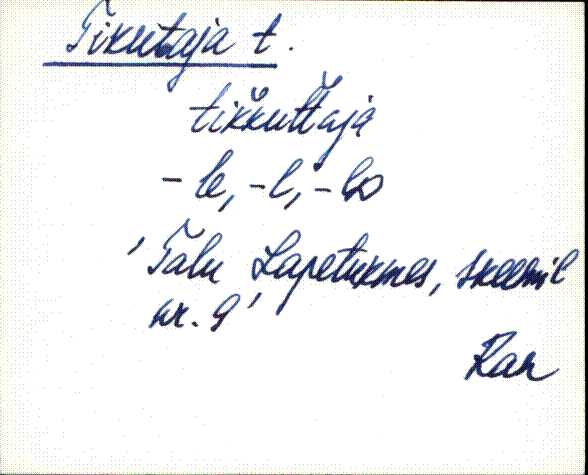 Tikutaja t.
tik̆kut̆taja
-le, -l, -lo
'Talu Lapetukmes, skeemil
nr. 9'
Ran